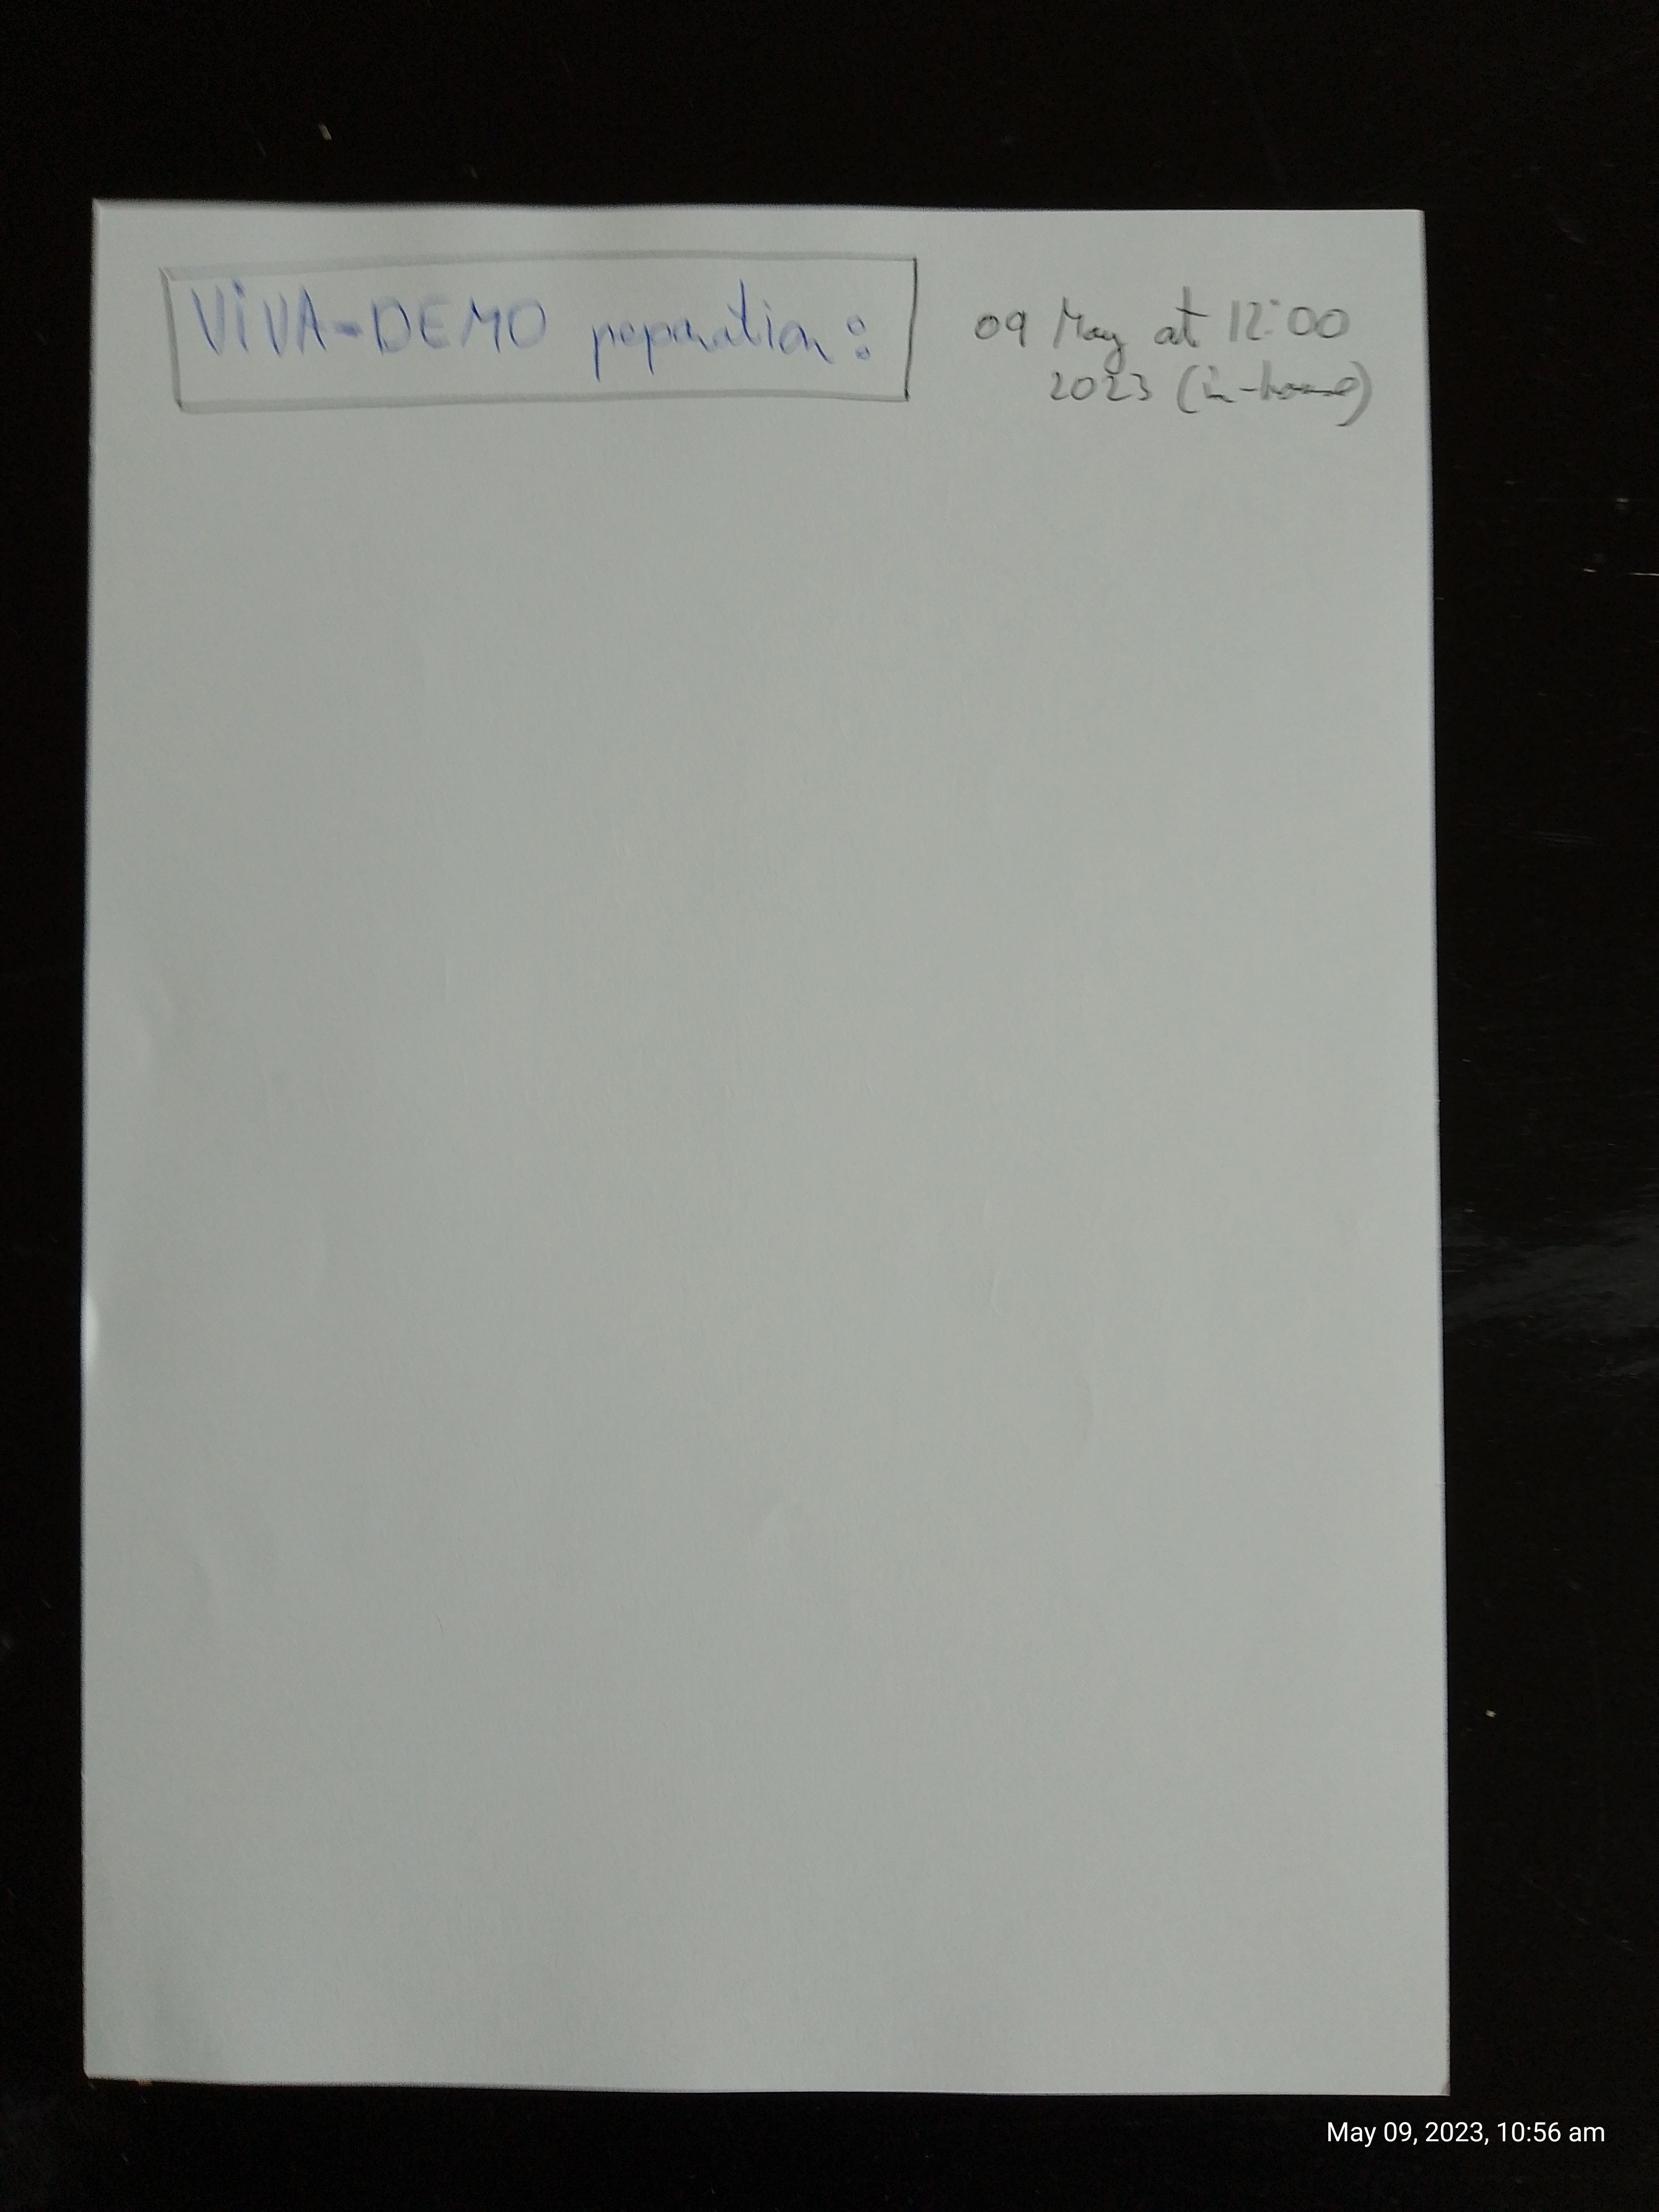 ViVA-DEMO preparation:
09 May at 12:00
2023 (in-house)
May 09, 2023, 10:56 am